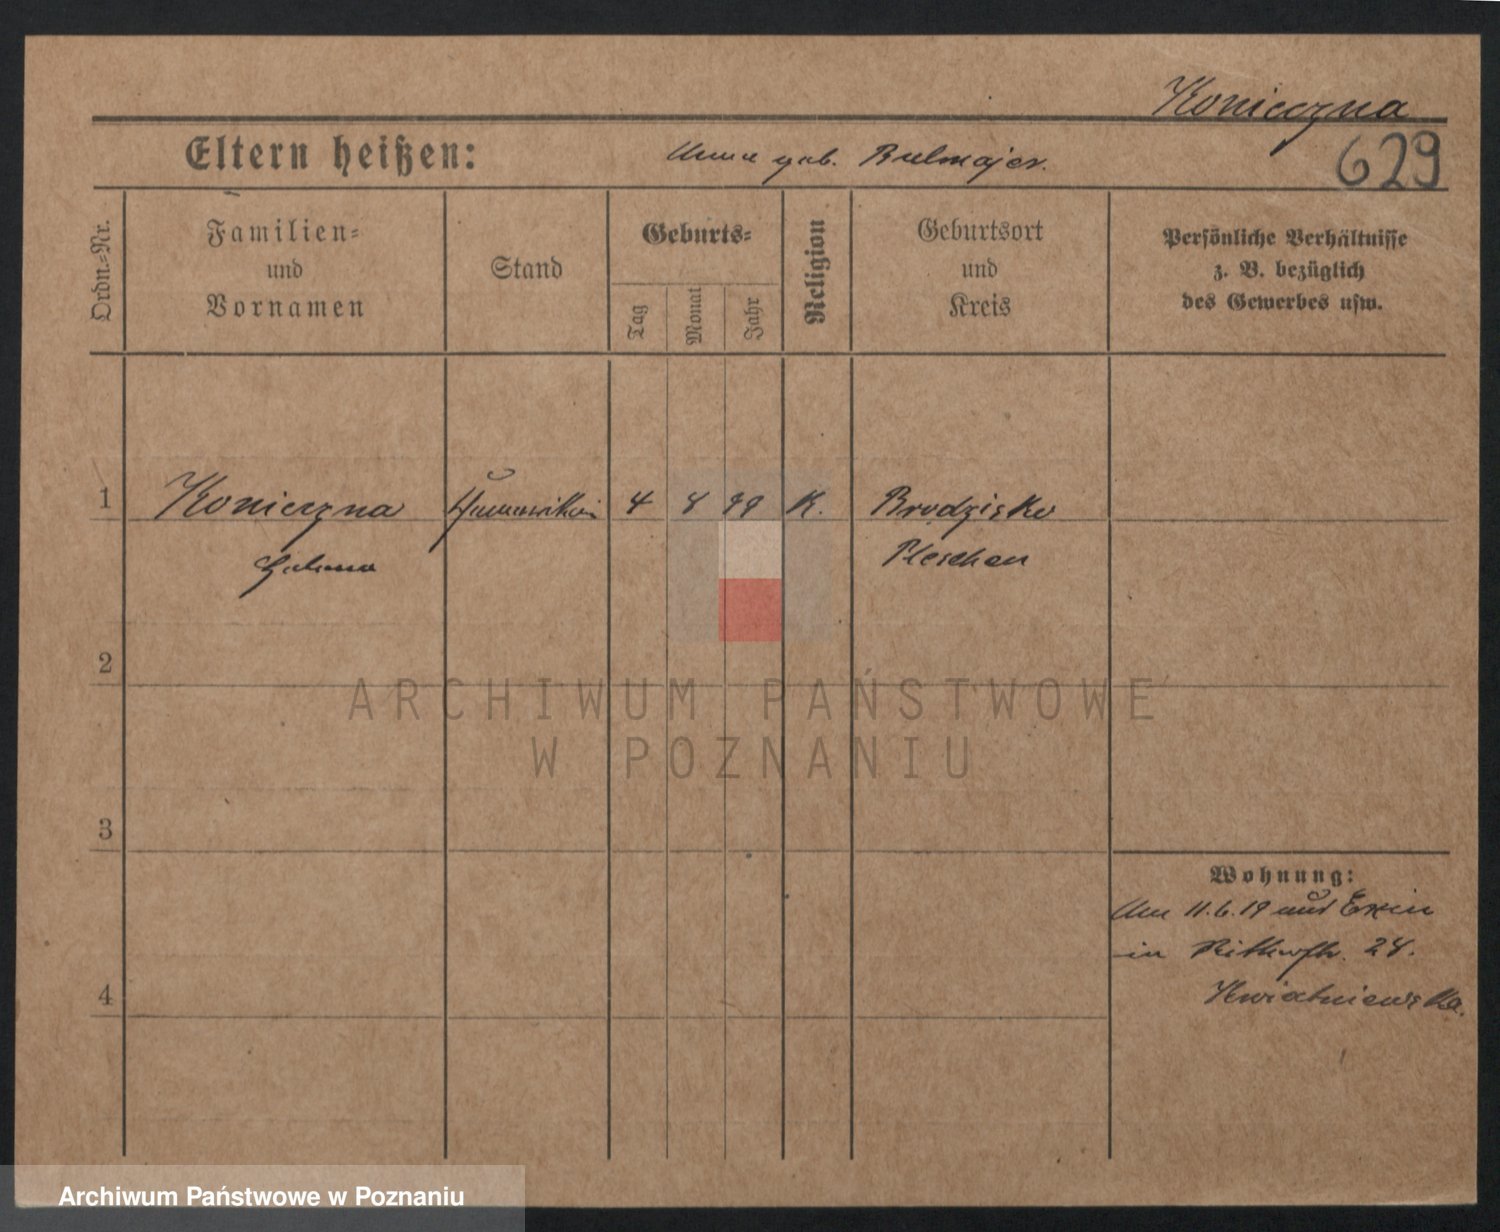 Konieczna
629
Eltern heißen: Anna geb. Bulmajer.
Ordn.-Nr.
Familien-
und
Vornamen
Stand
Geburts-
Tag
Monat
Jahr
Religion
Geburtsort
und
Kreis
Persönliche Verhältnisse
z. B. bezüglich
des Gewerbes usw.
1 Konieczna 4 8 99 K. Brodzisko
Helena Pleschen
2
3
4
Wohnung:
Am 11.6.19 aus Exin
in Ritterstr. 24.
Kwiatniewska.
ARCHIWUM PAŃSTWOWE
W POZNANIU
Archiwum Państwowe w Poznaniu